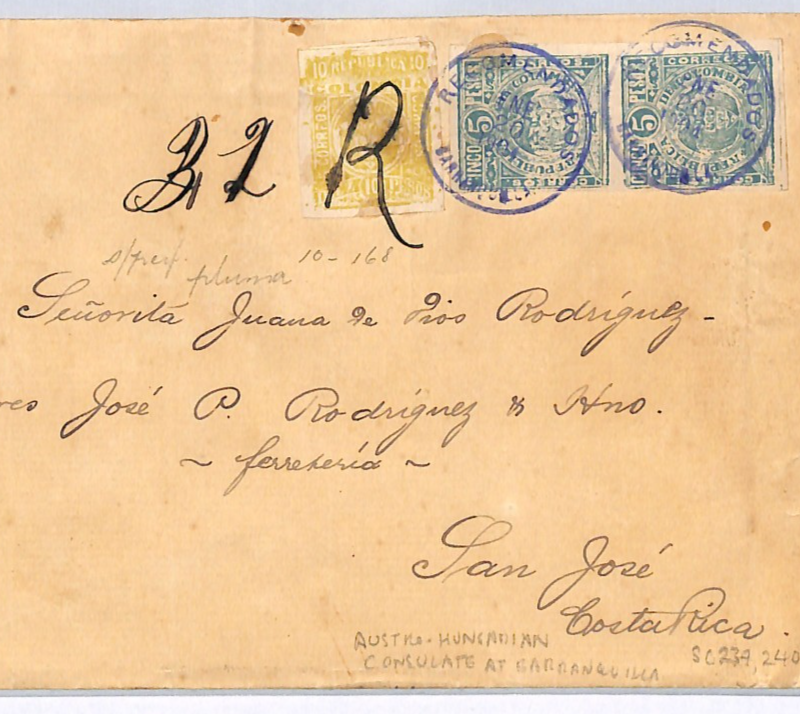 10 REPUBLICA 10
CORREOS.
10 PESOS
RECOMENDADOS
ENE
20
CORREOS.
REPUBLICA
CINCO 5 PESOS
RECOMENDADOS
ENE
20
CORREOS
DE COLOMBIA
REPUBLICA
CINCO 5 PESOS
R
s/perf. pluma 10-168
Señorita Juana de Dios Rodríguez -
José P. Rodríguez & Hno.
~ ferretería ~
San José
Costa Rica.
AUSTRO-HUNGARIAN
CONSULATE AT BARRANQUILLA
SC239, 240